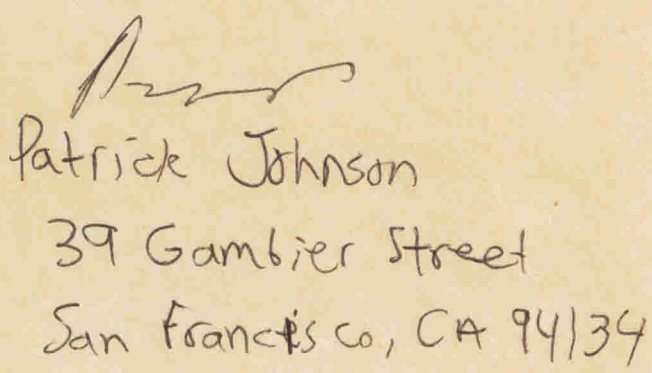 Patrick Johnson
39 Gambier Street
San Francisco, CA 94134